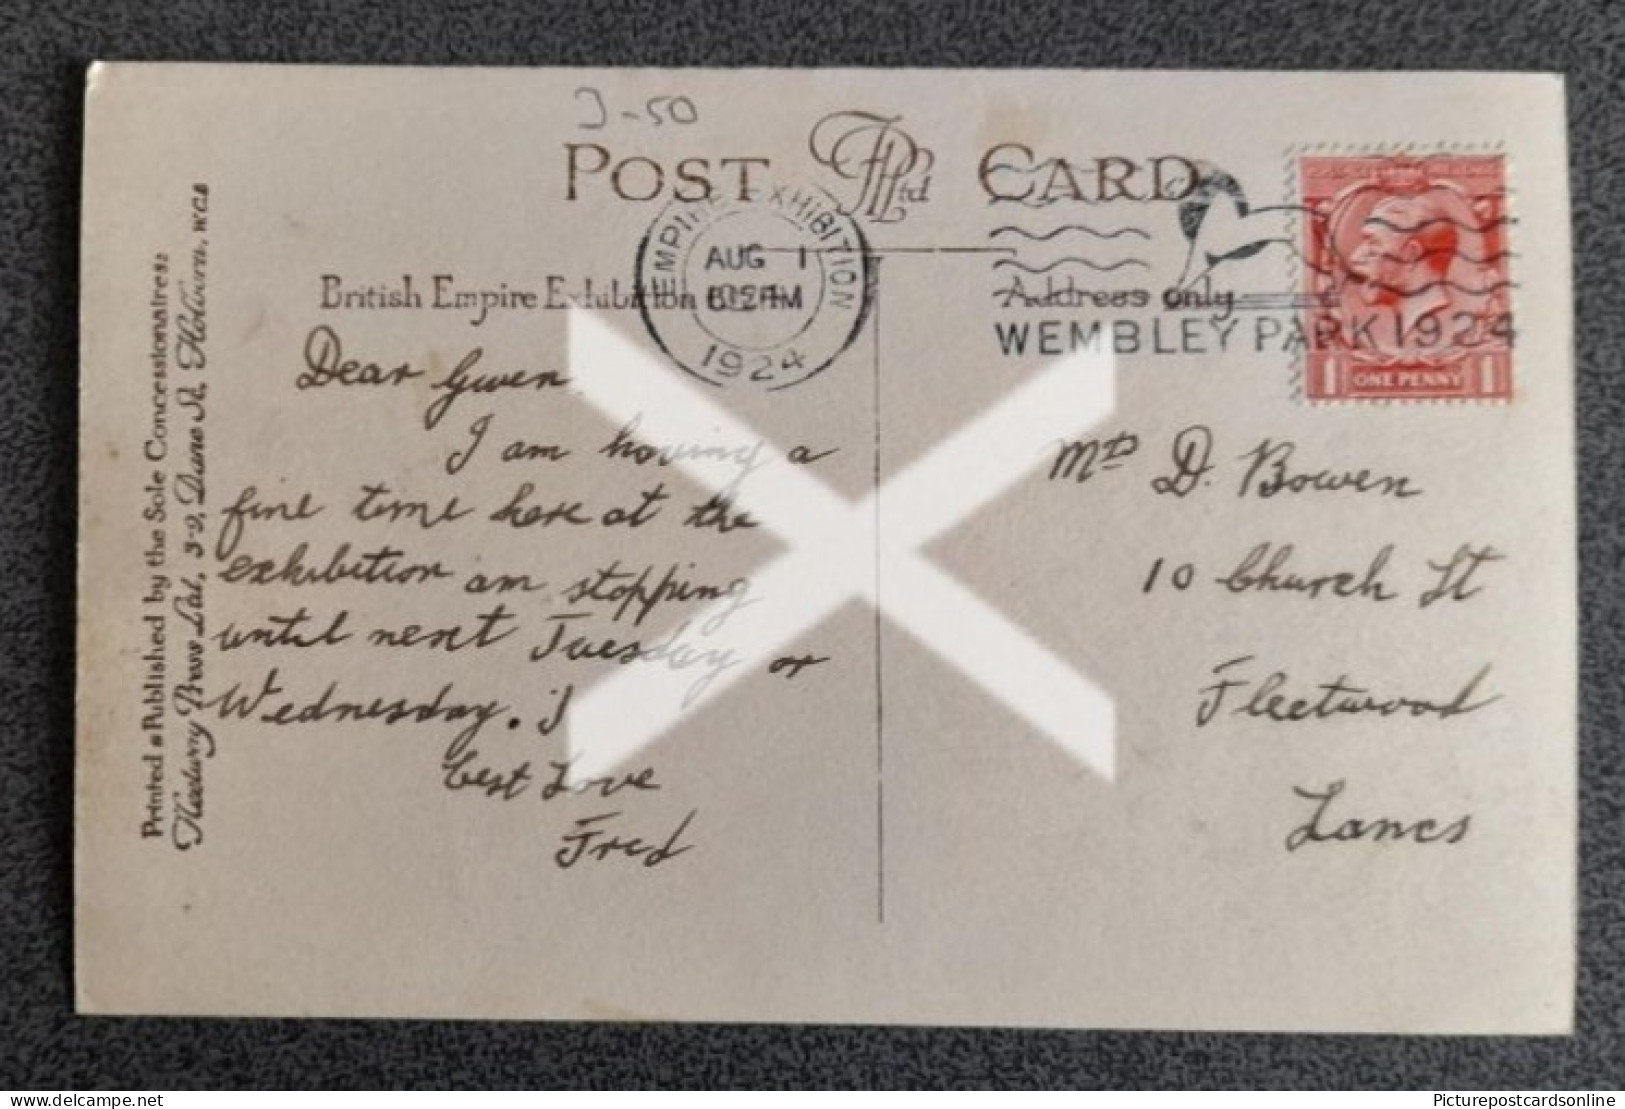 3-50
POST FPLtd CARD
EMPIRE EXHIBITION
AUG 1
1924
WEMBLEY PARK 1924
ONE PENNY
1 1
British Empire Exhibition
Address only
Printed & Published by the Sole Concessionaires:
Fleetway Press Ltd., 3-9, Dane St. Holborn, W.C.1
Dear Gwen,
I am having a
fine time here at the
exhibition am stopping
until next Tuesday or
Wednesday.
best Love
Fred
D. Bowen
10 Church St
Fleetwood
Lancs
Picturepostcardsonline